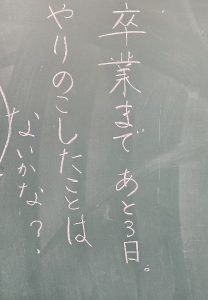 卒業まで あと3日。
やりのこしたことは
ないかな？